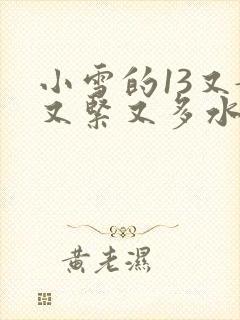 小雪的13又
又緊又多水
黃老濕